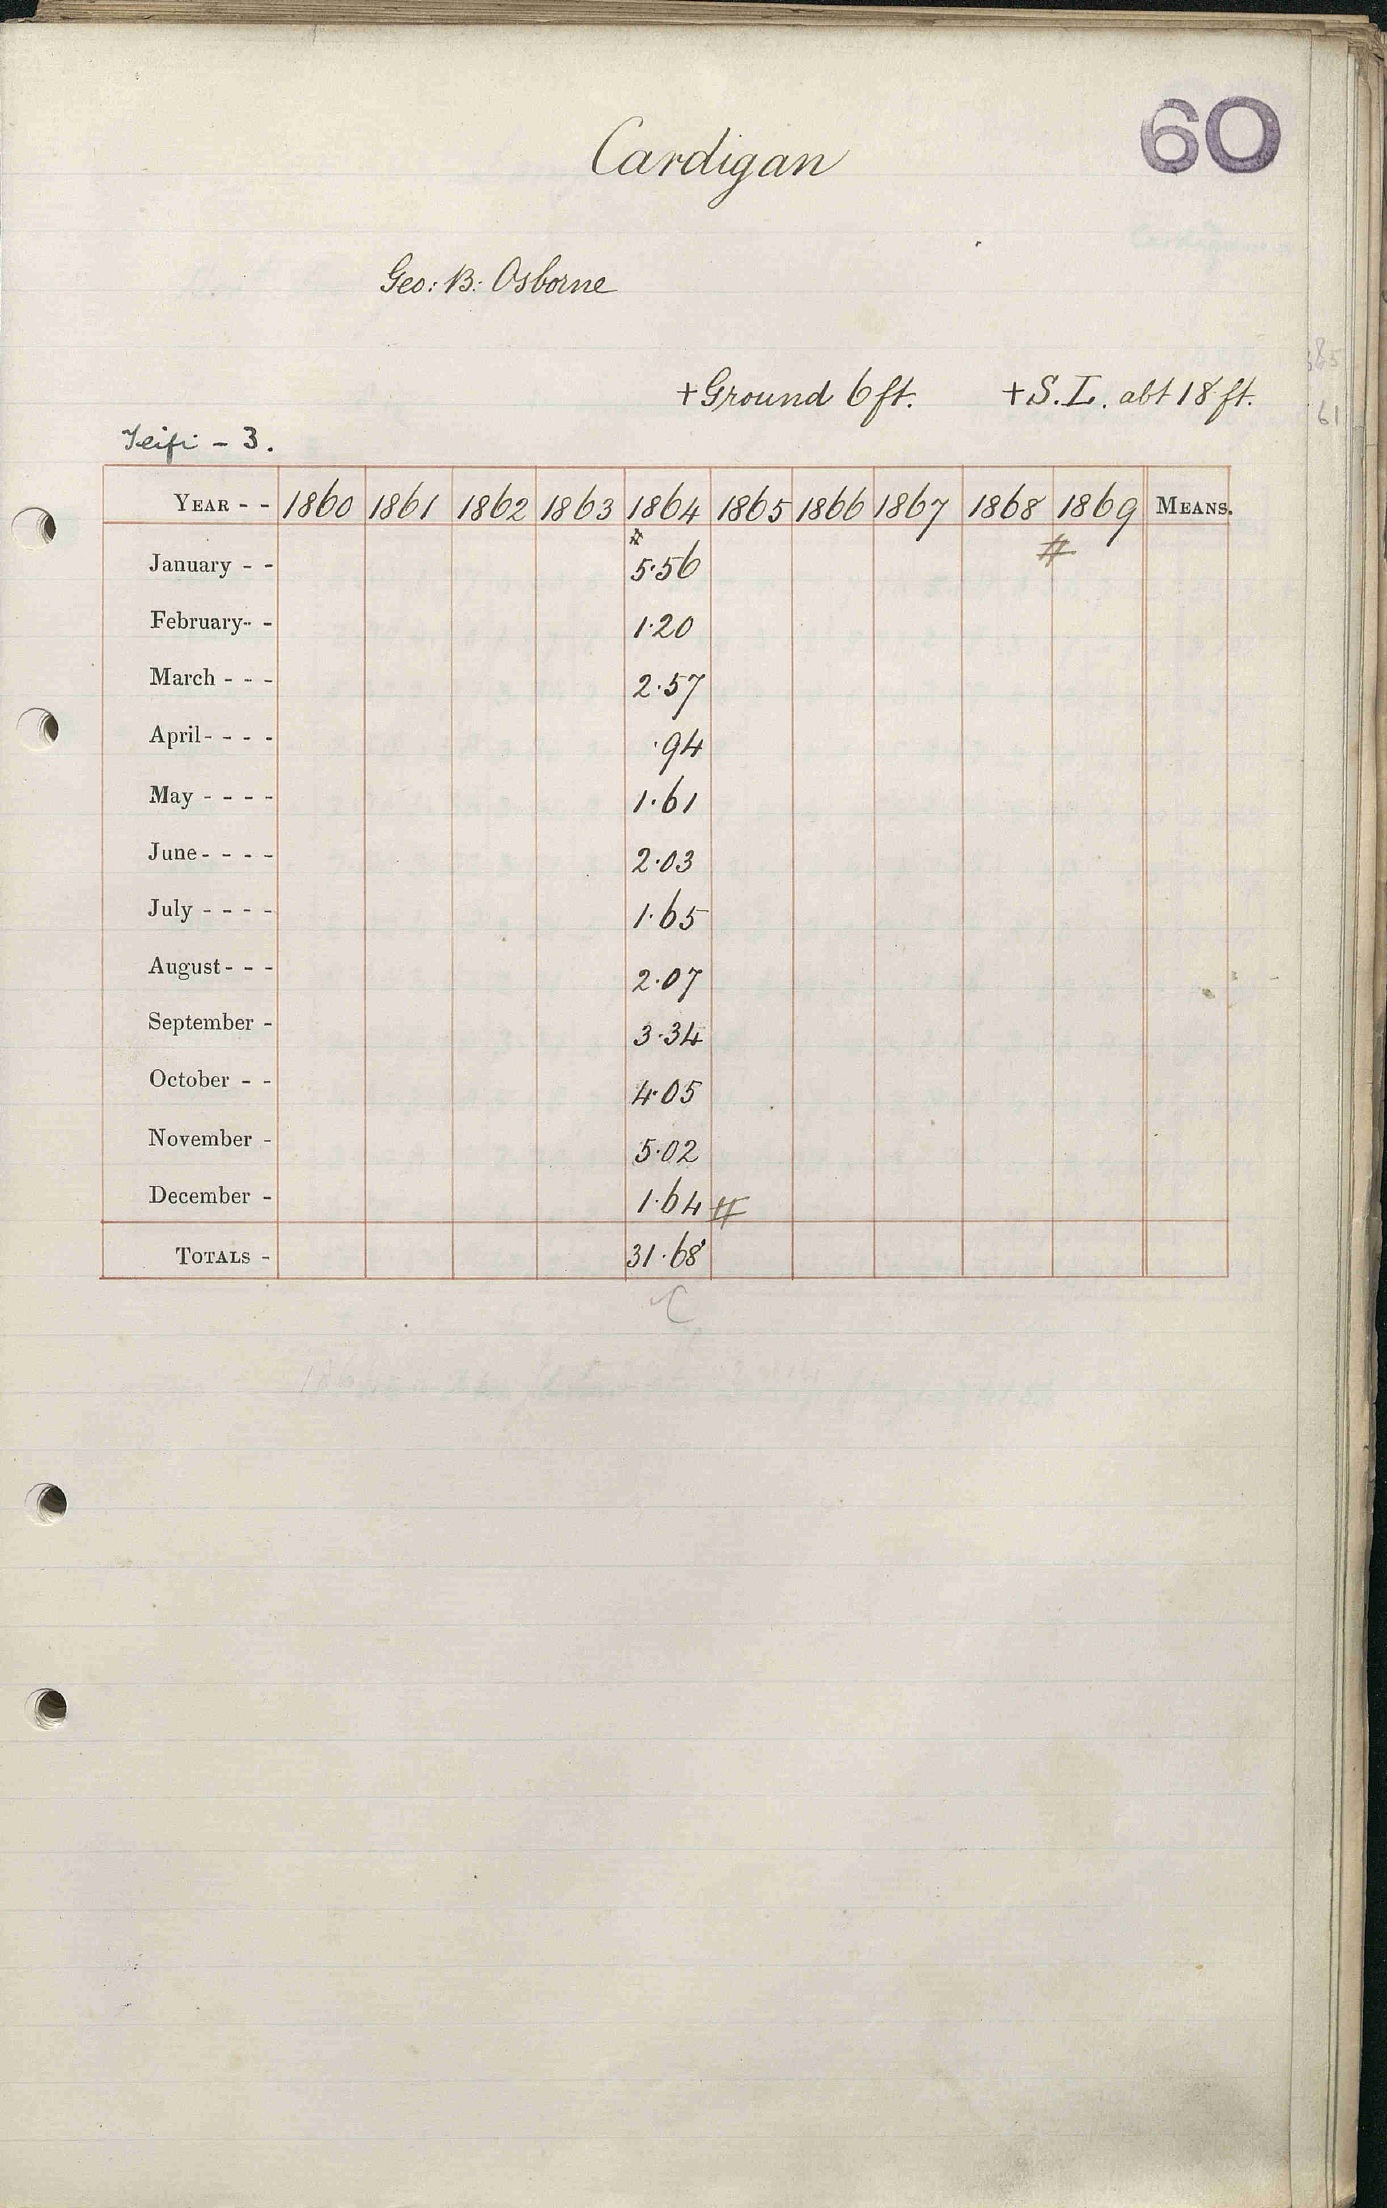 60
Cardigan
Geo: B: Osborne
+Ground 6 ft. +S.L. abt 18 ft.
Teifi - 3.
YEAR - - 1860 1861 1862 1863 1864 1865 1866 1867 1868 1869 MEANS.
#
January - - 5.56
February - - 1.20
March - - - 2.57
April - - - - .94
May - - - - 1.61
June - - - - 2.03
July - - - - 1.65
August - - - 2.07
September - 3.34
October - - 4.05
November - 5.02
December - 1.64 #
TOTALS - 31.68
C